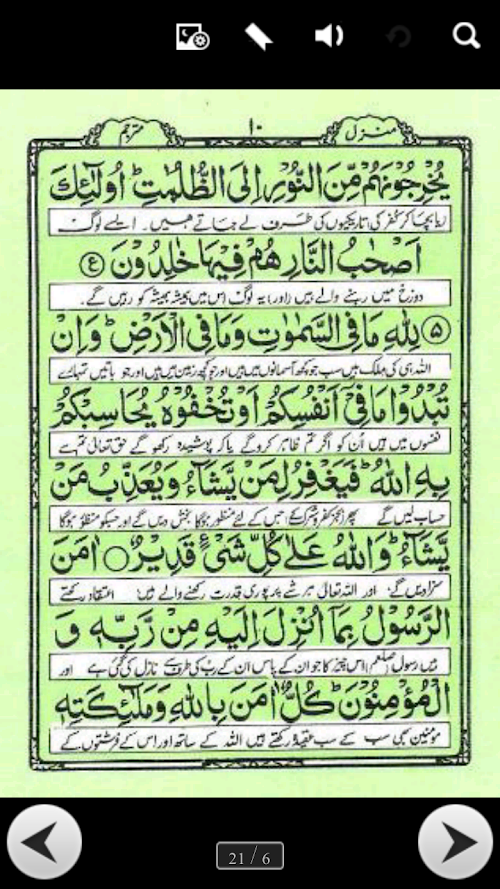 منزل ۱۰ مترجم
يُخْرِجُوْنَهُمْ مِّنَ النُّوْرِ اِلَى الظُّلُمٰتِ ؕ اُولٰٓئِكَ
(یا بچا کر کفر کی تاریکیوں کی طرف لے جاتے ہیں۔ ایسے لوگ
اَصْحٰبُ النَّارِ هُمْ فِيْهَا خٰلِدُوْنَ ع
دوزخ میں رہنے والے ہیں (اور) یہ لوگ اس میں ہمیشہ ہمیشہ کو رہیں گے۔
۵ لِلّٰهِ مَا فِى السَّمٰوٰتِ وَمَا فِى الْاَرْضِ ؕ وَاِنْ
اللہ ہی کی ملک ہیں سب جو کچھ آسمانوں میں ہیں اور جو کچھ زمین میں ہیں اور جو باتیں تمہارے
تُبْدُوْا مَا فِىْٓ اَنْفُسِكُمْ اَوْ تُخْفُوْهُ يُحَاسِبْكُمْ
نفسوں میں ہیں اُن کو اگر تم ظاہر کرو گے یا کہ پوشیدہ رکھو گے حق تعالیٰ تم سے
بِهِ اللّٰهُ ؕ فَيَغْفِرُ لِمَنْ يَّشَآءُ وَيُعَذِّبُ مَنْ
حساب لیں گے پھر (بجز کفر و شرک کے) جس کے لئے منظور ہوگا بخش دیں گے اور جسکو منظور ہوگا
يَّشَآءُ ؕ وَاللّٰهُ عَلٰى كُلِّ شَىْءٍ قَدِيْرٌ ○ اٰمَنَ
سزا دیں گے۔ اور اللہ تعالیٰ ہر شے پر پوری قدرت رکھنے والے ہیں اعتقاد رکھتے
الرَّسُوْلُ بِمَآ اُنْزِلَ اِلَيْهِ مِنْ رَّبِّهٖ وَ
ہیں رسول (صلعم) اس چیز کا جو ان کے پاس ان کے رب کی طرف سے نازل کی گئی ہے اور
الْمُؤْمِنُوْنَ ؕ كُلٌّ اٰمَنَ بِاللّٰهِ وَمَلٰٓئِكَتِهٖ
مؤمنین بھی سب کے سب عقیدہ رکھتے ہیں اللہ کے ساتھ اور اس کے فرشتوں کے
21 / 6